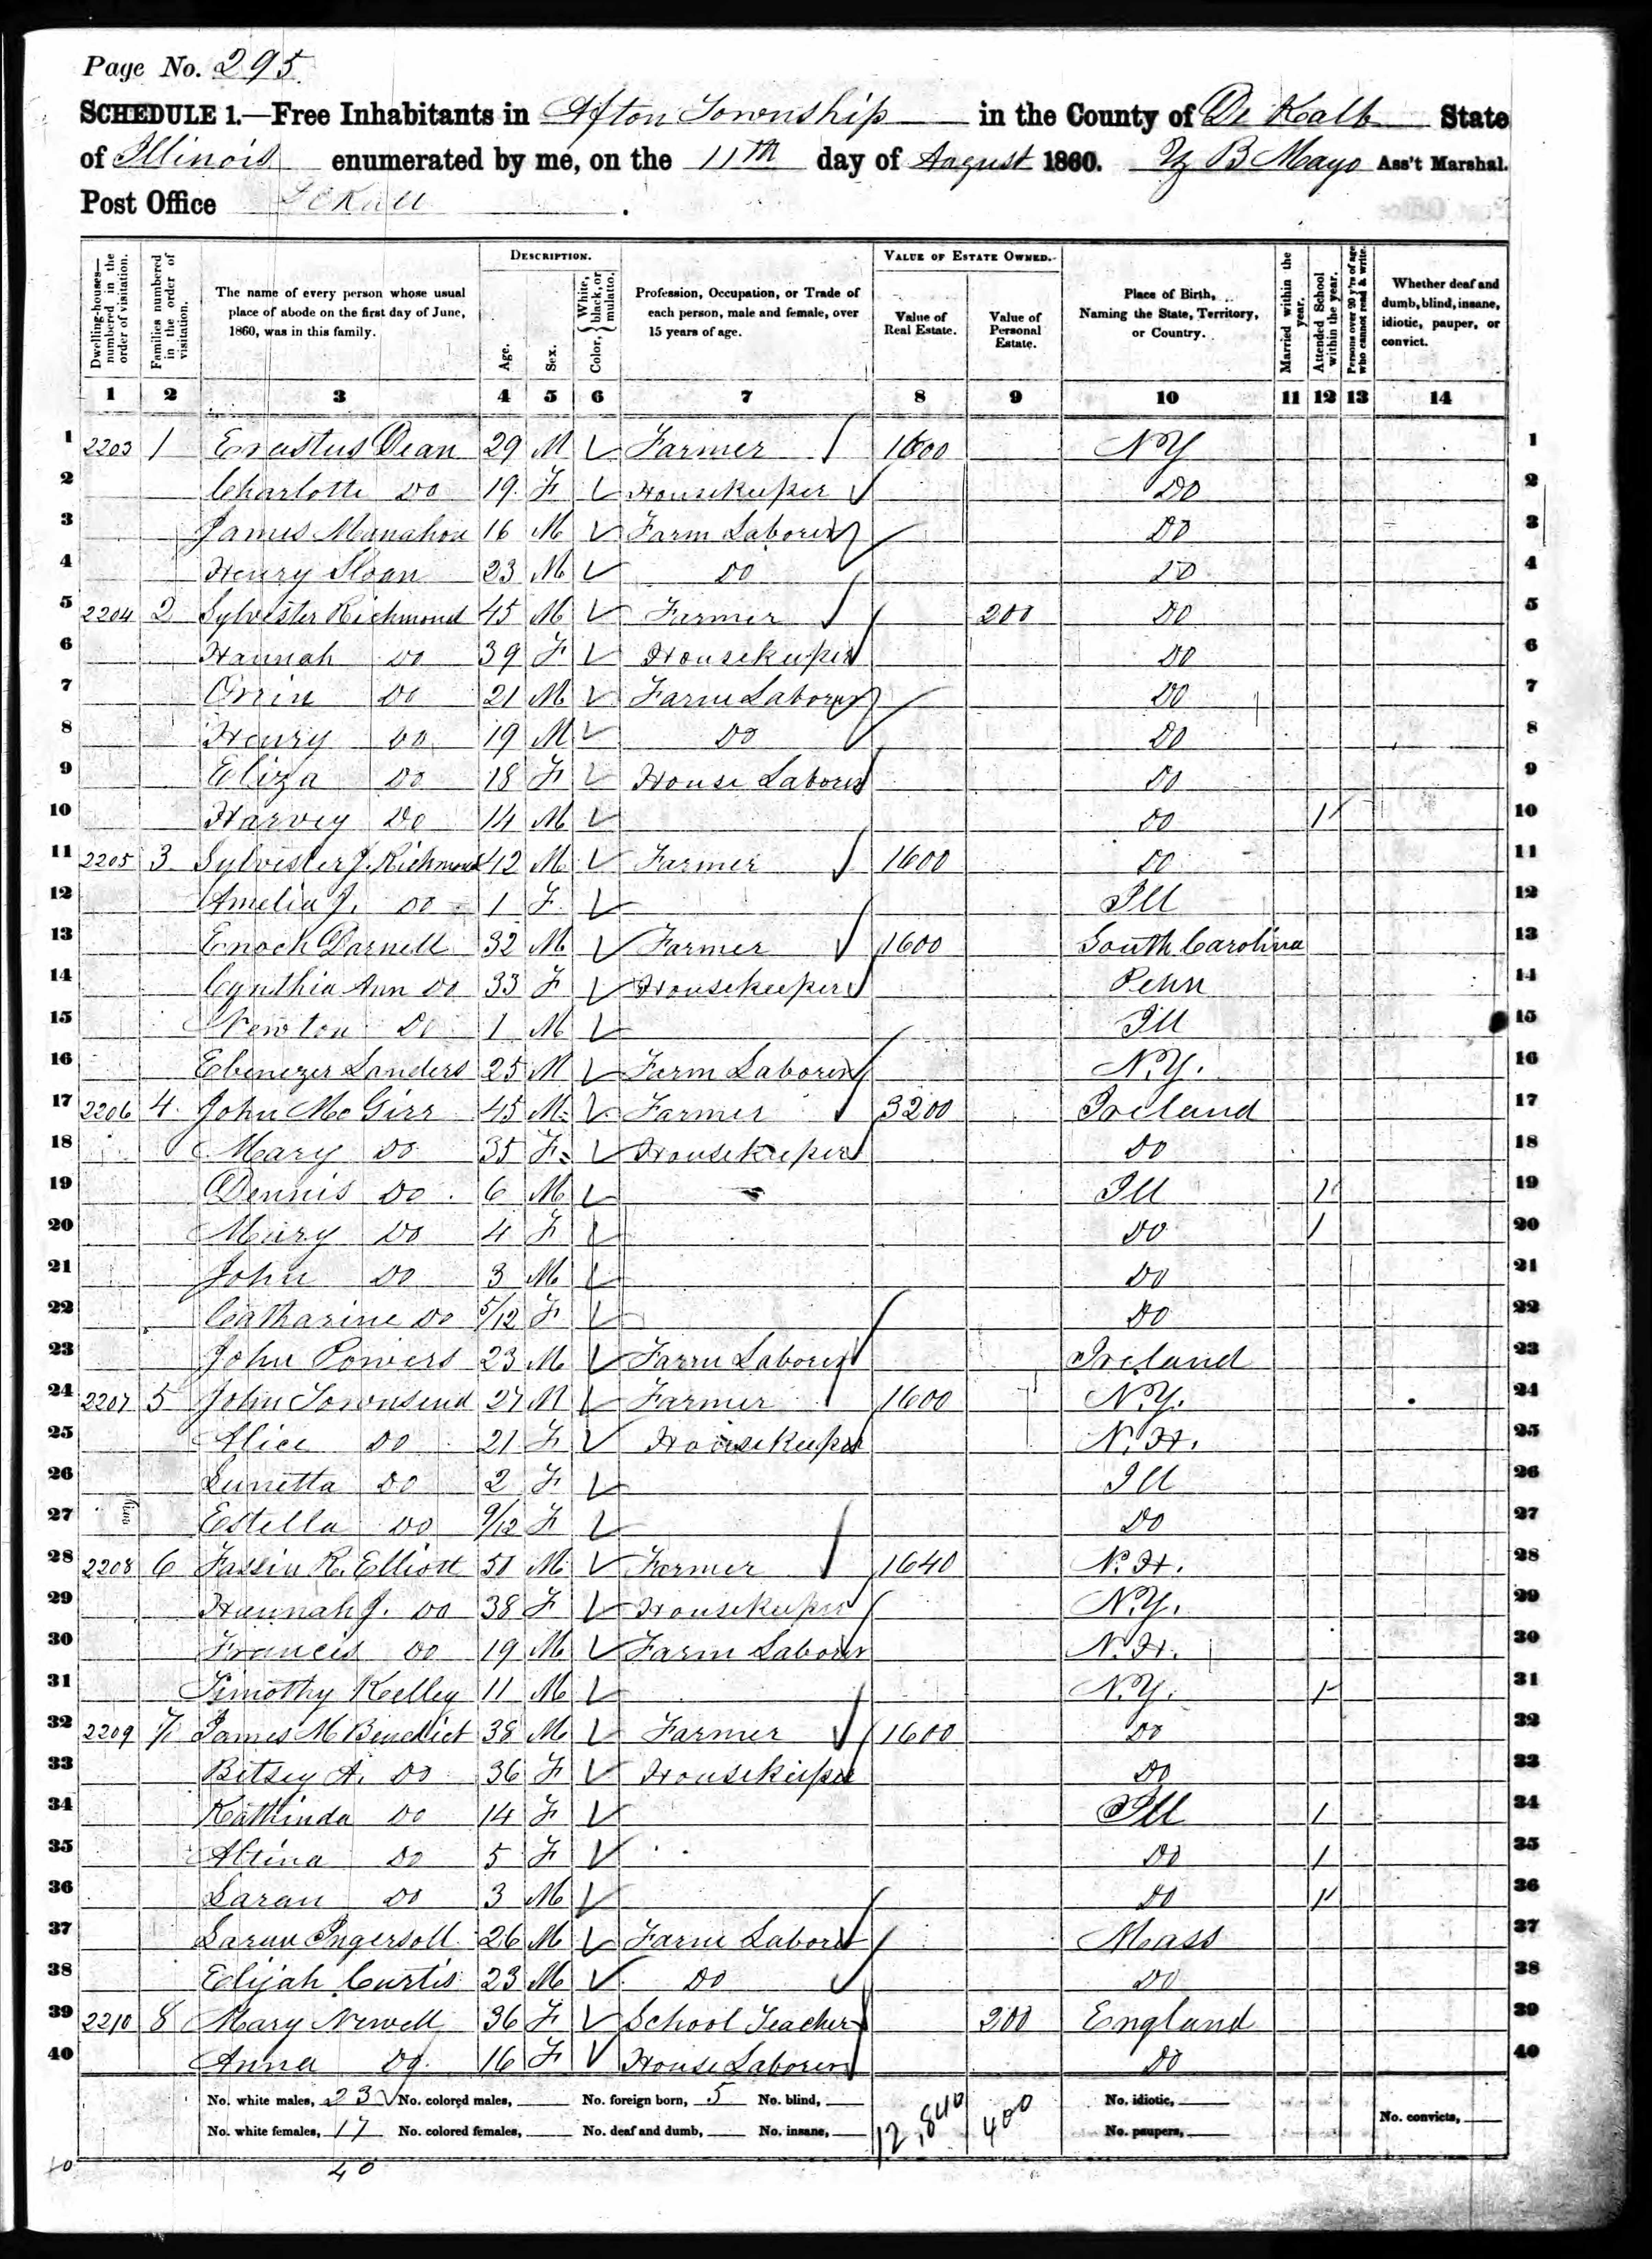 Page No. 295
SCHEDULE 1.—Free Inhabitants in Afton Township in the County of De Kalb State
of Illinois enumerated by me, on the 11th day of August 1860. B Mayo Ass't Marshal.
Post Office DeKalb
Dwelling-houses—numbered in the order of visitation.
Families numbered in the order of visitation.
The name of every person whose usual place of abode on the first day of June, 1860, was in this family.
DESCRIPTION.
Age.
Sex.
Color, { White, black, or mulatto.
Profession, Occupation, or Trade of each person, male and female, over 15 years of age.
VALUE OF ESTATE OWNED.
Value of Real Estate.
Value of Personal Estate.
Place of Birth, Naming the State, Territory, or Country.
Married within the year.
Attended School within the year.
Persons over 20 y'rs of age who cannot read & write.
Whether deaf and dumb, blind, insane, idiotic, pauper, or convict.
1 2 3 4 5 6 7 8 9 10 11 12 13 14
1 2203 1 Erastus Dean 29 M Farmer 1600 NY 1
2 Charlotte Do 19 F Housekeeper Do 2
3 James Manahon 16 M Farm Laborer Do 3
4 Henry Sloan 23 M Do Do 4
5 2204 2 Sylvester Richmond 45 M Farmer 200 Do 5
6 Hannah Do 39 F Housekeeper Do 6
7 Orrin Do 21 M Farm Laborer Do 7
8 Henry Do 19 M Do Do 8
9 Eliza Do 18 F House Laborer Do 9
10 Harvey Do 14 M Do 1 10
11 2205 3 Sylvester J. Richmond 42 M Farmer 1600 Do 11
12 Amelia J. Do 1 F Ill 12
13 Enoch Darnell 32 M Farmer 1600 South Carolina 13
14 Cynthia Ann Do 33 F Housekeeper Penn 14
15 Newton Do 1 M Ill 15
16 Ebenezer Landers 25 M Farm Laborer N.Y. 16
17 2206 4 John McGirr 45 M Farmer 3200 Ireland 17
18 Mary Do 35 F Housekeeper Do 18
19 Dennis Do 6 M Ill 1 19
20 Mary Do 4 F Do 1 20
21 John Do 3 M Do 21
22 Catharine Do 5/12 F Do 22
23 John Powers 23 M Farm Laborer Ireland 23
24 2207 5 John Townsend 27 M Farmer 1600 N.Y. 24
25 Alice Do 21 F Housekeeper N.H. 25
26 Lunetta Do 2 F Ill 26
27 Estella Do 9/12 F Do 27
28 2208 6 R. Elliott M Farmer 1640 N.H. 28
29 Hannah J. Do 38 F Housekeeper N.Y. 29
30 Francis Do 19 M Farm Laborer N.H. 30
31 Timothy Kelley 11 M N.Y. 1 31
32 2209 7 James M Benedict 38 M Farmer 1600 Do 32
33 Betsey A. Do 36 F Housekeeper Do 33
34 Kathinda Do 14 F Ill 1 34
35 Do 5 F Do 1 35
36 Laran Do 3 M Do 1 36
37 Ingersoll 26 M Farm Laborer Mass 37
38 Elijah Curtis 23 M Do Do 38
39 2210 8 Mary Newell 36 F School Teacher 200 England 39
40 Anna Do 16 F House Laborer Do 40
No. white males, 23 No. colored males, No. foreign born, 5 No. blind, 12,840 400 No. idiotic,
No. white females, 17 No. colored females, No. deaf and dumb, No. insane, No. paupers, No. convicts,
40